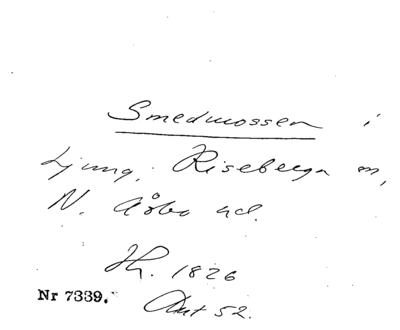 Smedmossen i
Ljung, Riseberga sn,
N. Åsbo hd.
Hh. 1826
Nr 7339. Akt 52.